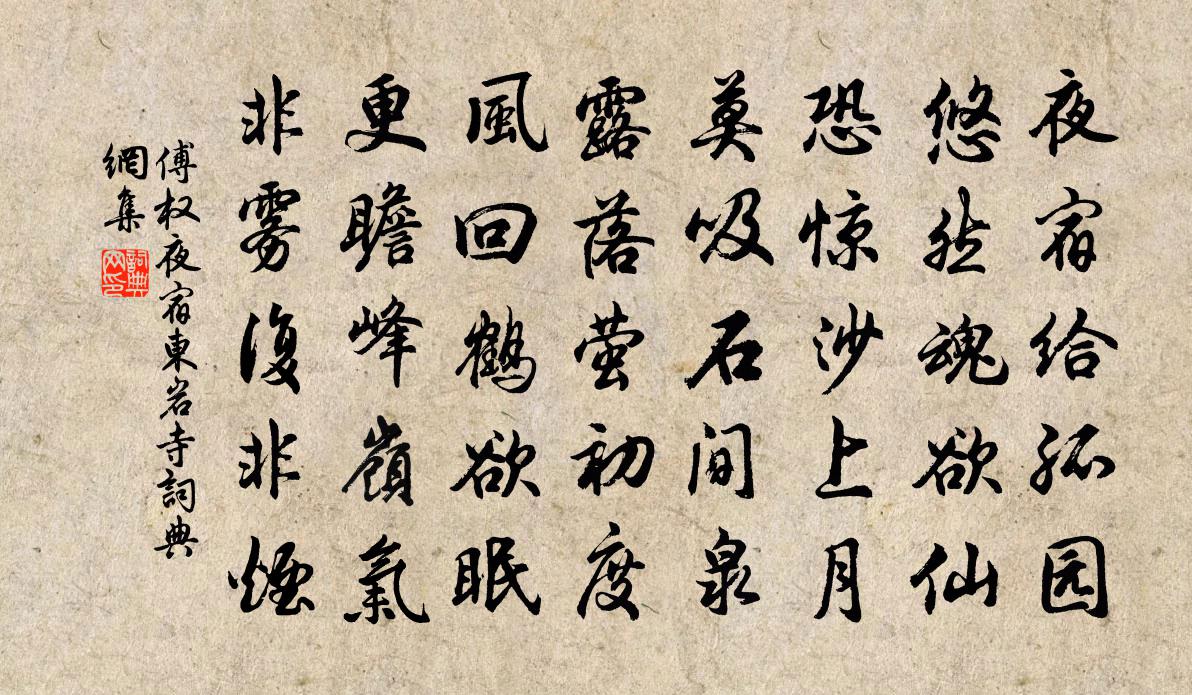 夜宿给孤园
悠然魂欲仙
恐惊沙上月
莫吸石间泉
露落萤初度
風回鹤欲眠
更瞻峰嶺氣
非雾復非煙
傅权夜宿東岩寺詞典
網集
詞典网印